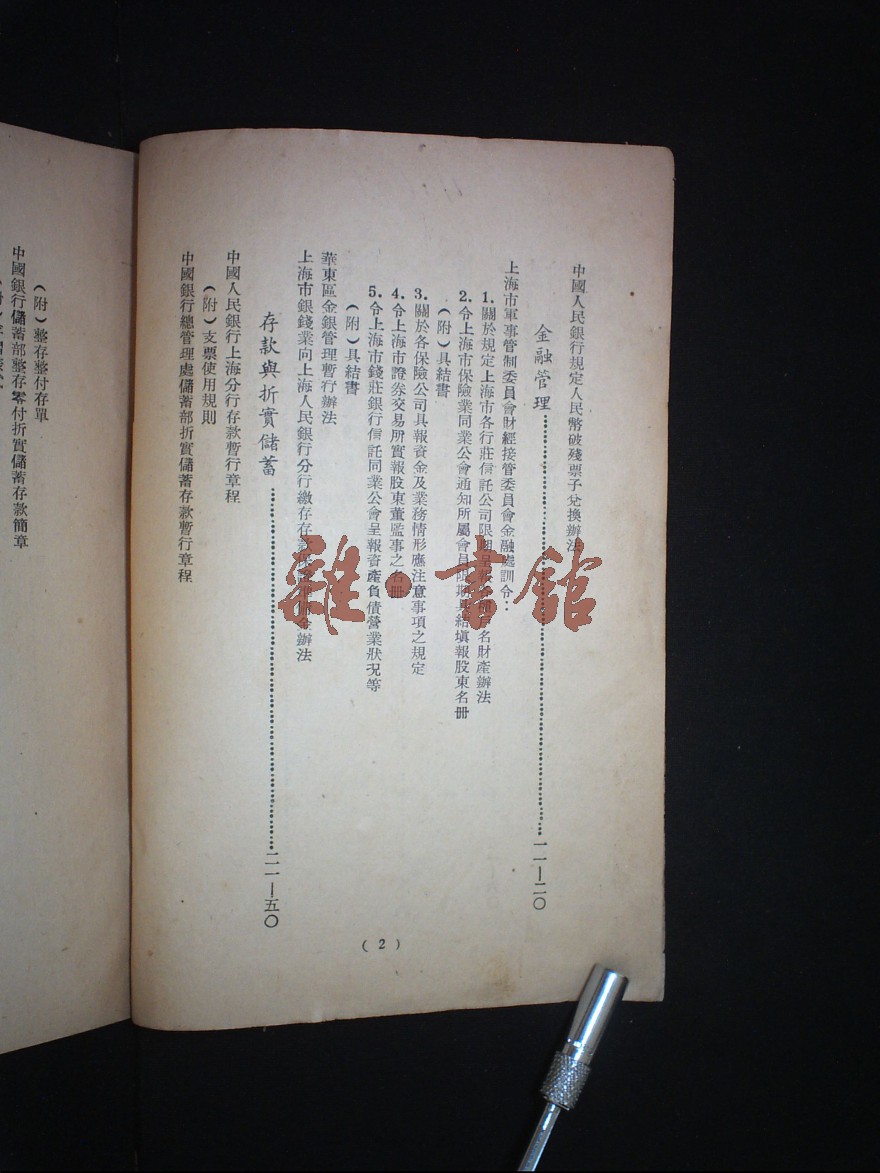 中國人民銀行規定人民幣破殘票子兌換辦法
金融管理……一一—二〇
上海市軍事管制委員會財經接管委員會金融處訓令：
1.關於規定上海市各行莊信託公司限期呈報各項戶名財產辦法
2.令上海市保險業同業公會通知所屬會員限期具結填報股東名册
（附）具結書
3.關於各保險公司具報資金及業務情形應注意事項之規定
4.令上海市證券交易所實報股東董監事之名冊
5.令上海市錢莊銀行信託同業公會呈報資產負債營業狀況等
（附）具結書
華東區金銀管理暫行辦法
上海市銀錢業向上海人民銀行分行繳存存款保證準備金辦法
存款與折實儲蓄……二一—五〇
中國人民銀行上海分行存款暫行章程
（附）支票使用規則
中國銀行總管理處儲蓄部折實儲蓄存款暫行章程
（2）
（附）整存整付存單
中國銀行儲蓄部整存零付折實儲蓄存款簡章
雜·書館